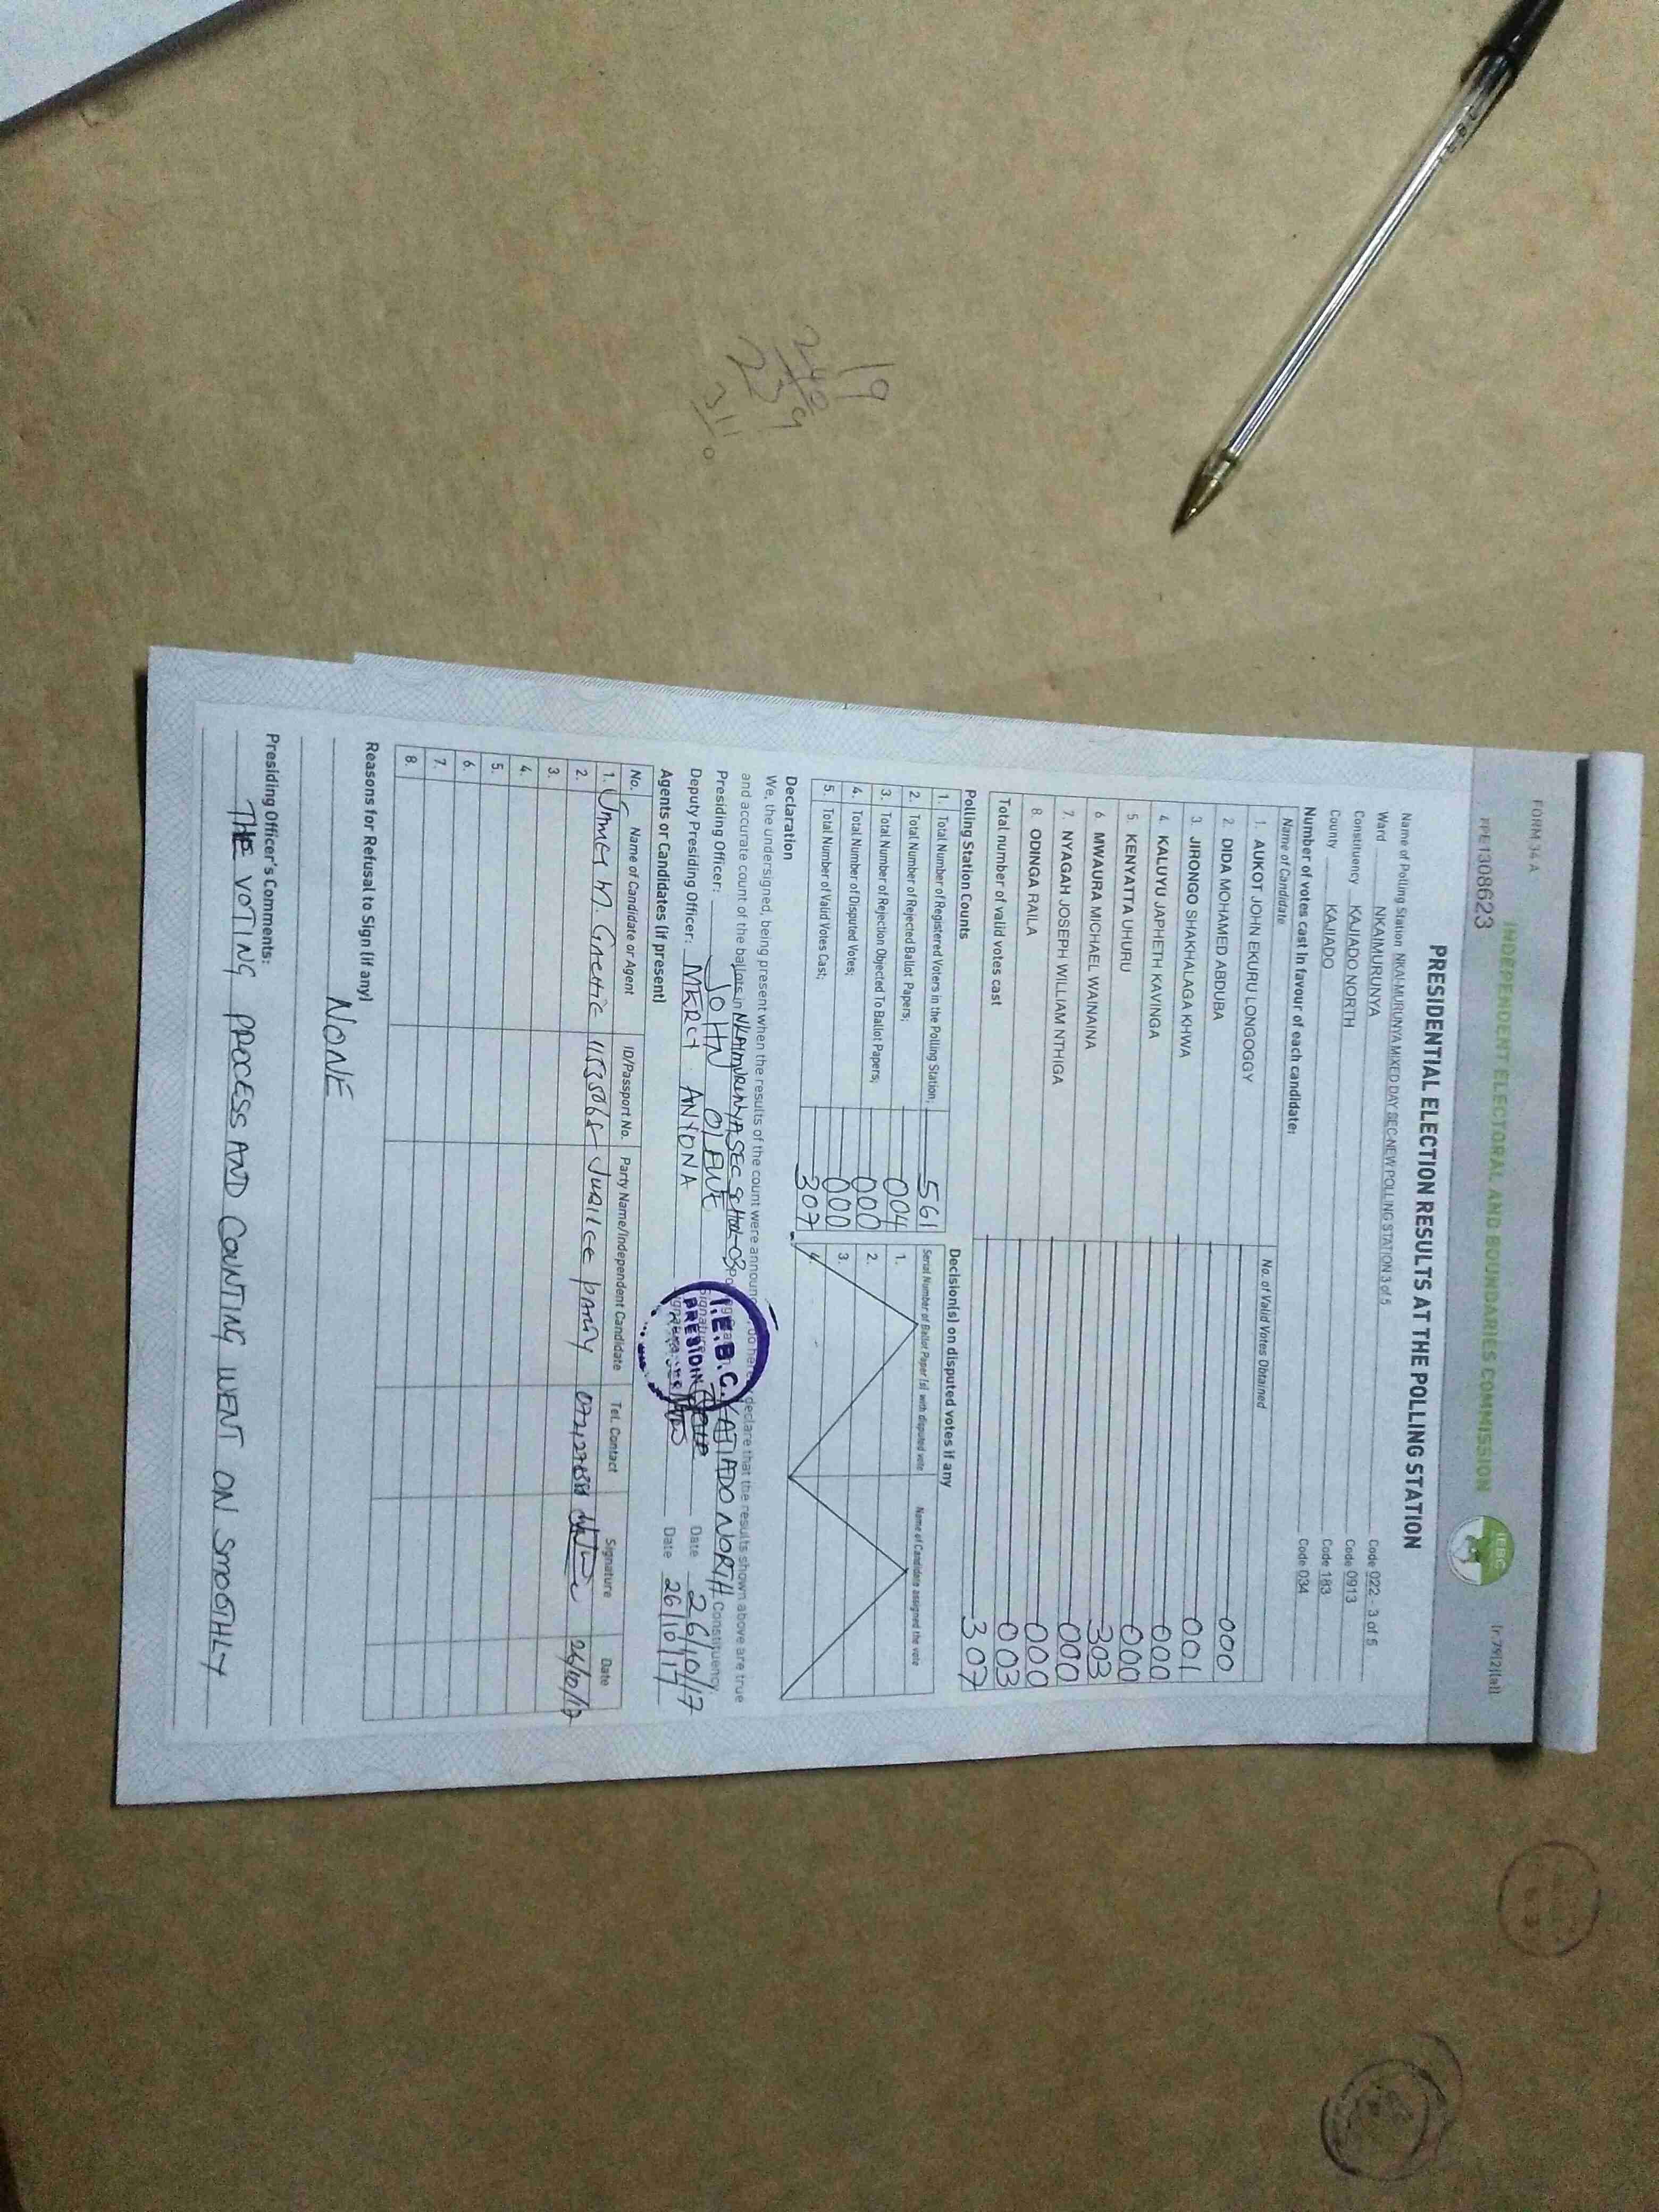 FORM 34 A
INDEPENDENT ELECTORAL AND BOUNDARIES COMMISSION
IEBC
PPE1308623
PRESIDENTIAL ELECTION RESULTS AT THE POLLING STATION
Name of Polling Station NKAI-MURUNYA MIXED DAY SEC-NEW POLLING STATION 3 of 5 Code 022 - 3 of 5
Ward NKAIMURUNYA Code 0913
Constituency KAJIADO NORTH Code 183
County KAJIADO Code 034
Number of votes cast in favour of each candidate:
Name of Candidate No. of Valid Votes Obtained
1. AUKOT JOHN EKURU LONGOGGY 000
2. DIDA MOHAMED ABDUBA 001
3. JIRONGO SHAKHALAGA KHWA 000
4. KALUYU JAPHETH KAVINGA 000
5. KENYATTA UHURU 303
6. MWAURA MICHAEL WAINAINA 000
7. NYAGAH JOSEPH WILLIAM NTHIGA 000
8. ODINGA RAILA 003
Total number of valid votes cast 307
Polling Station Counts
1. Total Number of Registered Voters in the Polling Station; 561
2. Total Number of Rejected Ballot Papers; 004
3. Total Number of Rejection Objected To Ballot Papers; 000
4. Total Number of Disputed Votes; 000
5. Total Number of Valid Votes Cast; 307
Decision(s) on disputed votes if any
Serial Number of Ballot Paper (s) with disputed vote Name of Candidate assigned the vote
1.
2.
3.
4.
Declaration
We, the undersigned, being present when the results of the count were announ do her declare that the results shown above are true
and accurate count of the ballots in NKAIMURUNYA SEC SCHOOL-03 KAJIADO NORTH Constituency.
Presiding Officer: JOHN Date 26/10/17
Deputy Presiding Officer: MERCY ANYONA Date 26/10/17
I.E.B.C.
PRESIDIN
Agents or Candidates (if present)
No. Name of Candidate or Agent ID/Passport No. Party Name/Independent Candidate Tel. Contact Signature Date
1. 26/10/17
2.
3.
4.
5.
6.
7.
8.
Reasons for Refusal to Sign (if any)
NONE
Presiding Officer's Comments:
THE VOTING PROCESS AND COUNTING WENT ON SMOOTHLY
19
240
239